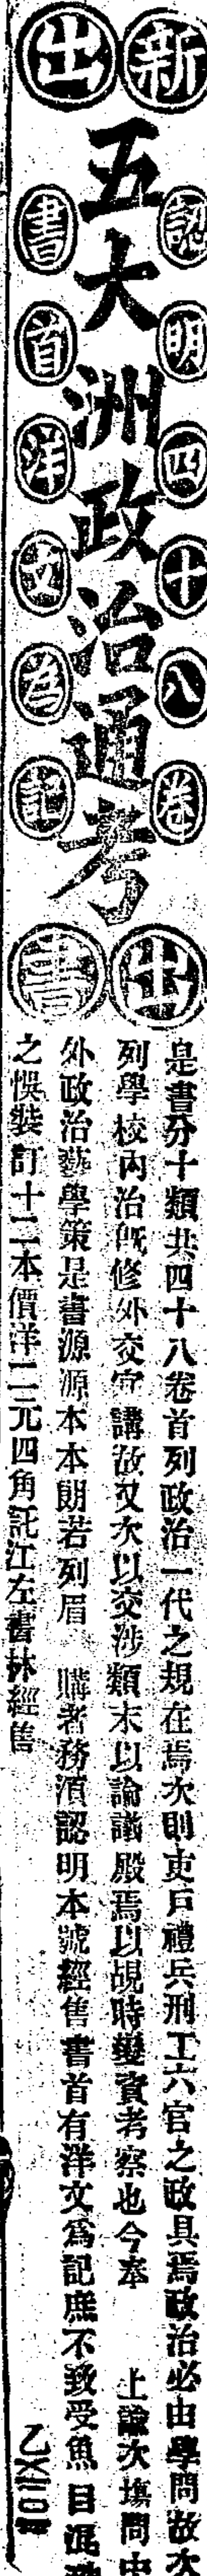 新出
五大洲政治通考
認明四十八卷
書首洋文為記
出書
是書分十類共四十八卷首列政治一代之規在焉次則吏戶禮兵刑工六官之政具焉政治必由學問故次
列學校內治既修外交宜講故又次以交涉類末以論議殿焉以覘時變資考察也今奉 上諭次塲問中
外政治藝學策是書源源本本朗若列眉 購者務須認明本號經售書首有洋文爲記庶不致受魚目混珠
之悞裝訂十二本價洋二元四角託江左書林經售